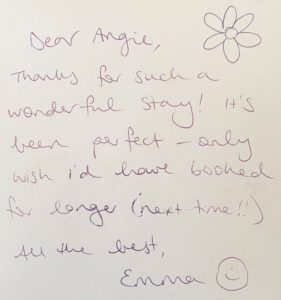 Dear Angie,
Thanks for such a
wonderful stay! It's
been perfect – only
wish i'd have booked
for longer (next time!!)
All the best,
Emma